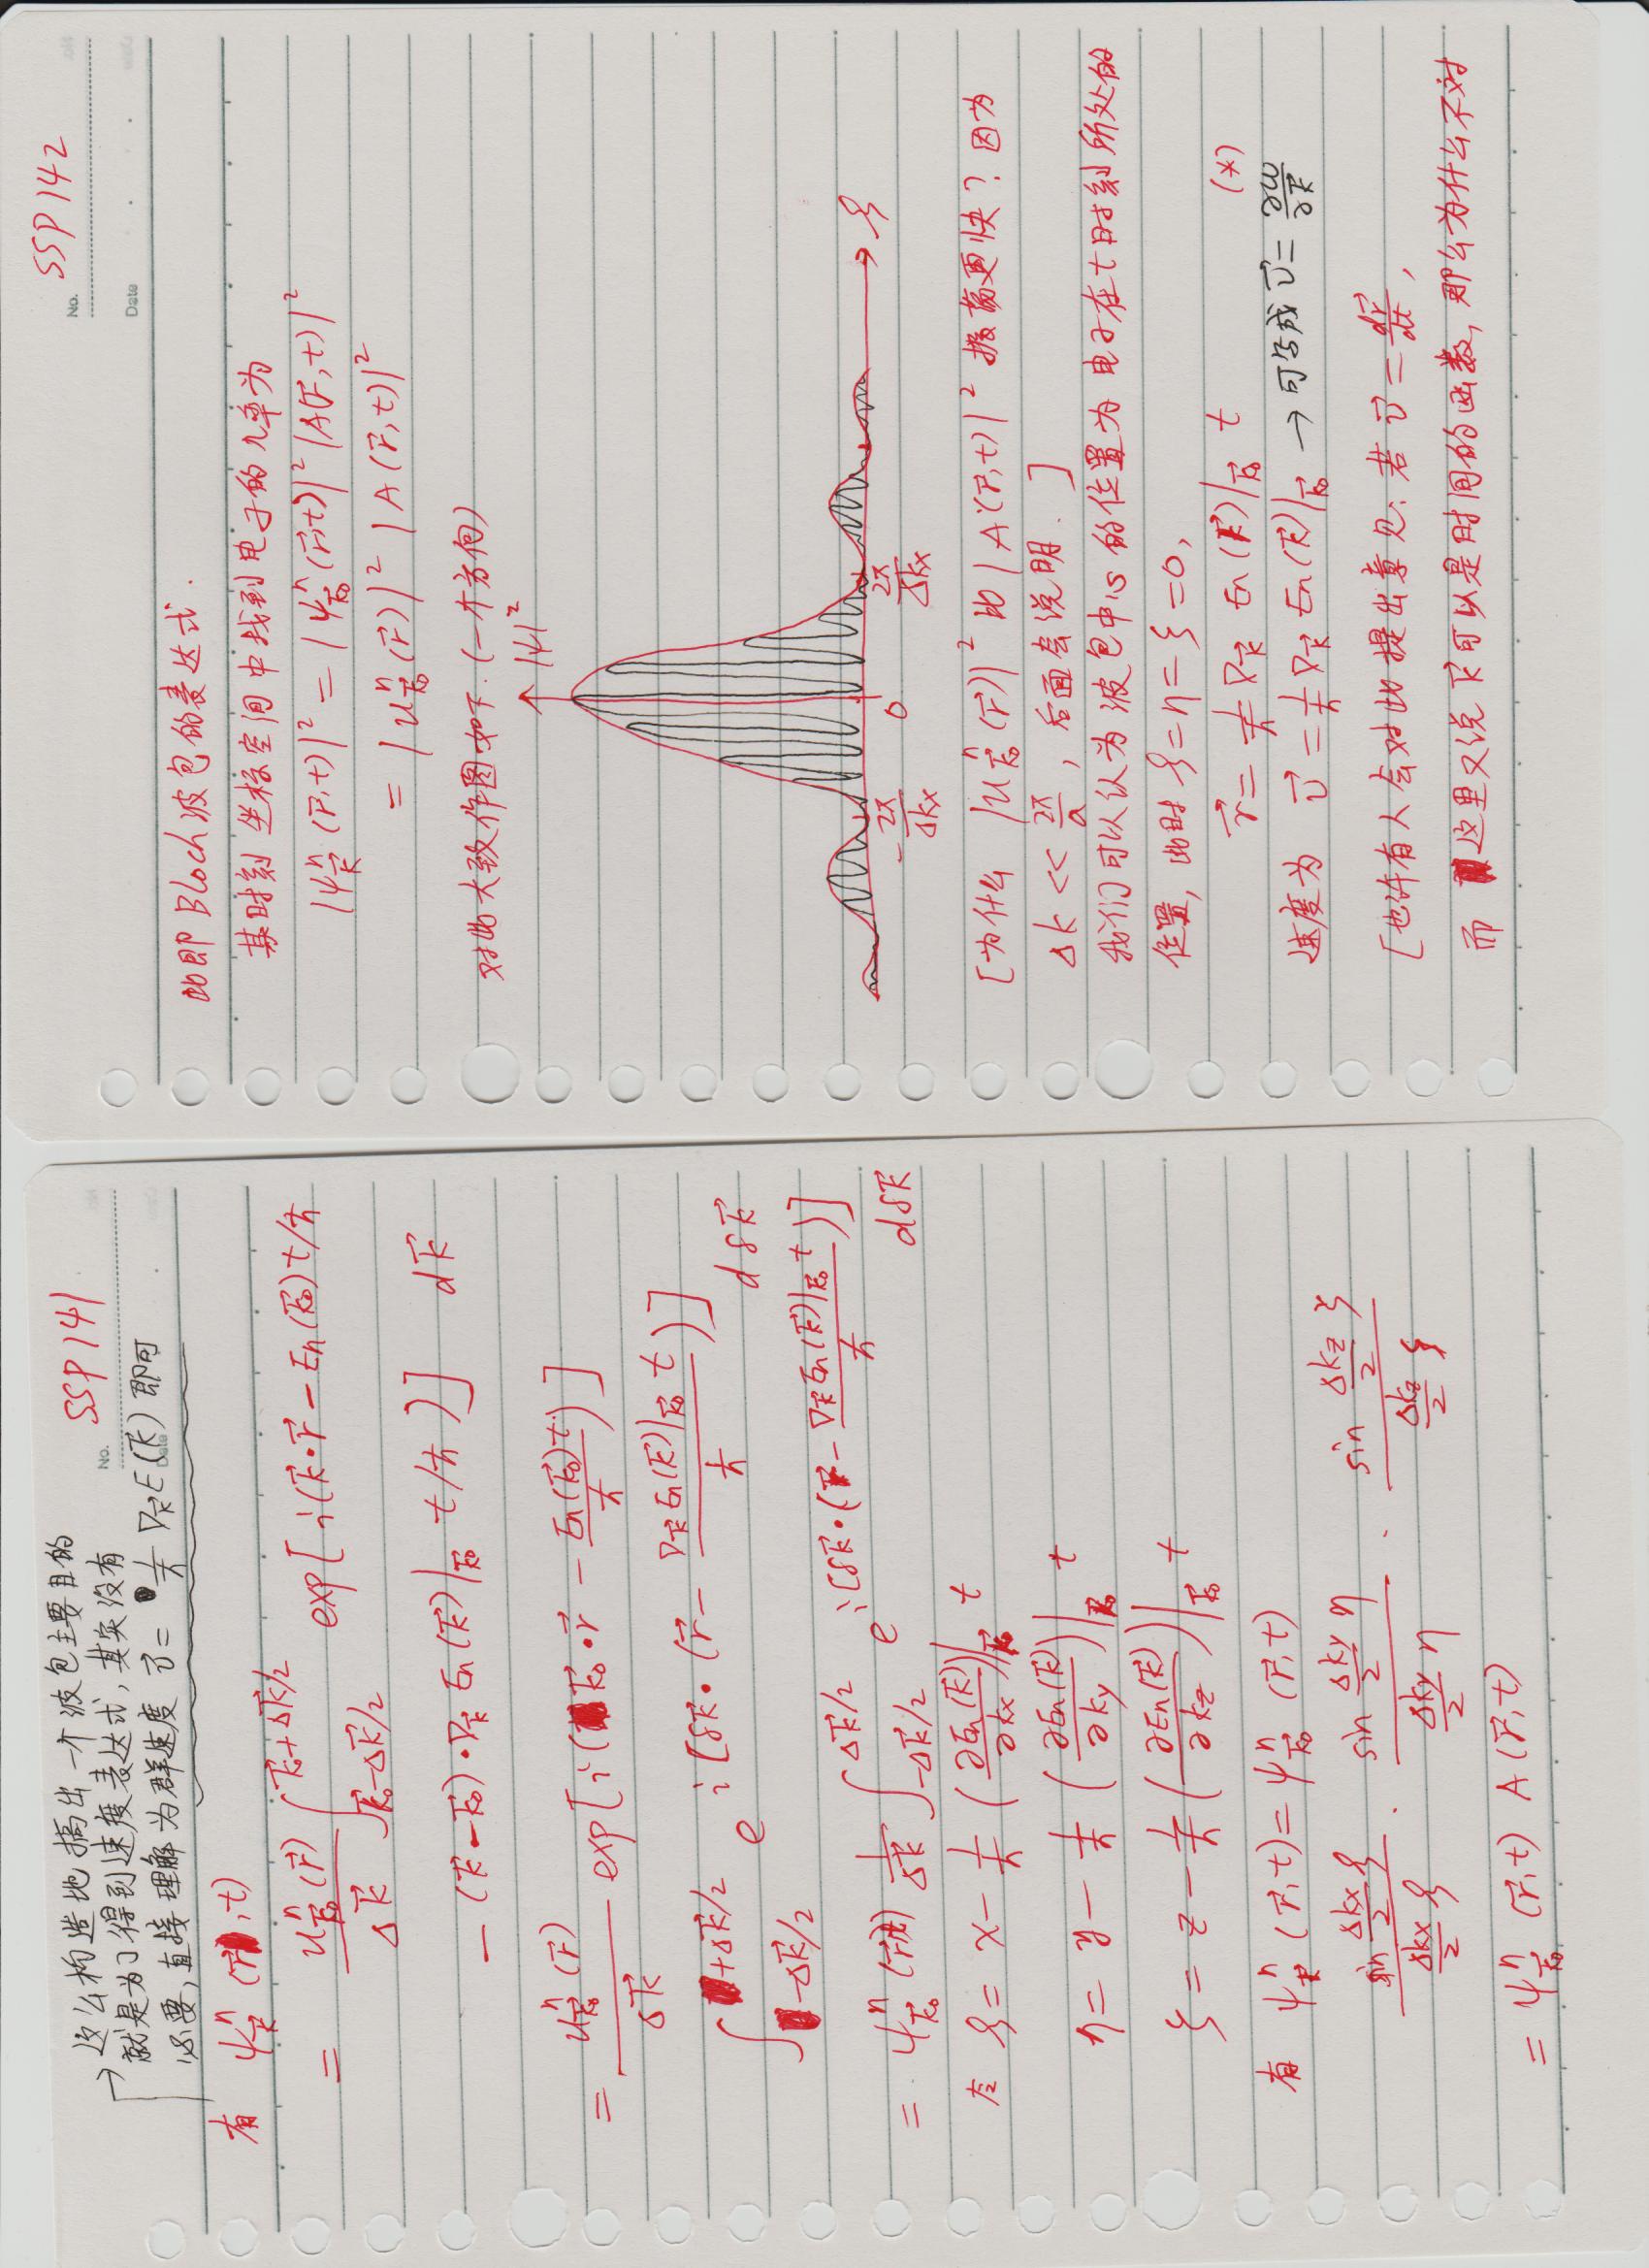 SSP 141
No.
Date
这么构造地搞出一个波包主要目的
就是为了得到速度表达式, 其实没有
必要, 直接理解为群速度 $\vec{v} = \frac{1}{\hbar} \nabla_{\vec{k}} E(\vec{k})$ 即可
有 $\psi_{\vec{k}}^n (\vec{r}, t)$
$= \frac{u_{\vec{k}_0}^n (\vec{r})}{\Delta \vec{k}} \int_{\vec{k}_0 - \Delta\vec{k}/2}^{\vec{k}_0 + \Delta\vec{k}/2} \exp[i(\vec{k} \cdot \vec{r} - E_n(\vec{k}_0) t/\hbar$
$- (\vec{k} - \vec{k}_0) \cdot \nabla_{\vec{k}} E_n(\vec{k})|_{\vec{k}_0} t/\hbar)] d\vec{k}$
$= \frac{u_{\vec{k}_0}^n (\vec{r})}{\Delta \vec{k}} \exp[i(\vec{k}_0 \cdot \vec{r} - \frac{E_n(\vec{k}_0) t}{\hbar})]$
$\int_{-\Delta\vec{k}/2}^{+\Delta\vec{k}/2} e^{i[\delta\vec{k} \cdot (\vec{r} - \frac{\nabla_{\vec{k}} E_n(\vec{k})|_{\vec{k}_0} t}{\hbar})]} d\delta\vec{k}$
$= \psi_{\vec{k}_0}^n (\vec{r}, t) \frac{1}{\Delta\vec{k}} \int_{-\Delta\vec{k}/2}^{\Delta\vec{k}/2} e^{i[\delta\vec{k} \cdot (\vec{r} - \frac{\nabla_{\vec{k}} E_n(\vec{k})|_{\vec{k}_0} t}{\hbar})]} d\delta\vec{k}$
令 $\xi = x - \frac{1}{\hbar} (\frac{\partial E_n(\vec{k})}{\partial k_x})|_{\vec{k}_0} t$
$\eta = y - \frac{1}{\hbar} (\frac{\partial E_n(\vec{k})}{\partial k_y})|_{\vec{k}_0} t$
$\zeta = z - \frac{1}{\hbar} (\frac{\partial E_n(\vec{k})}{\partial k_z})|_{\vec{k}_0} t$
有 $\psi_{\vec{k}}^n (\vec{r}, t) = \psi_{\vec{k}_0}^n (\vec{r}, t)$
$\frac{\sin \frac{\Delta k_x}{2} \xi}{\frac{\Delta k_x}{2} \xi} \cdot \frac{\sin \frac{\Delta k_y}{2} \eta}{\frac{\Delta k_y}{2} \eta} \cdot \frac{\sin \frac{\Delta k_z}{2} \zeta}{\frac{\Delta k_z}{2} \zeta}$
$= \psi_{\vec{k}_0}^n (\vec{r}, t) A(\vec{r}, t)$
SSP 142
No.
Date
此即 Bloch 波包的表达式.
某时刻 坐标空间中找到电子的几率为
$|\psi_{\vec{k}}^n (\vec{r}, t)|^2 = |\psi_{\vec{k}_0}^n (\vec{r}, t)|^2 |A(\vec{r}, t)|^2$
$= |u_{\vec{k}_0}^n (\vec{r})|^2 |A(\vec{r}, t)|^2$
对此大致作图如下. (一个方向)
$|\psi|^2$
$-\frac{2\pi}{\Delta k_x}$ 0 $\frac{2\pi}{\Delta k_x}$ $\xi$
[为什么 $|u_{\vec{k}_0}^n (\vec{r})|^2$ 比 $|A(\vec{r}, t)|^2$ 振荡更快? 因为
$\Delta k \ll \frac{2\pi}{a}$, 后面会说明. ]
我们可以认为波包中心的位置为电子在t时刻所处的
位置, 此时 $\xi = \eta = \zeta = 0$,
$\vec{r} = \frac{1}{\hbar} \nabla_{\vec{k}} E_n(\vec{k})|_{\vec{k}_0} t$ (*)
速度为 $\vec{v} = \frac{1}{\hbar} \nabla_{\vec{k}} E_n(\vec{k})|_{\vec{k}_0}$ → 可写成 $\vec{v} = \frac{\partial \omega}{\partial \vec{k}}$
[也许有人会对此提出意见: 若 $\vec{v} = \frac{d\vec{r}}{dt}$,
而这里又说 $\vec{k}$ 可以是时间的函数, 那么为什么不对